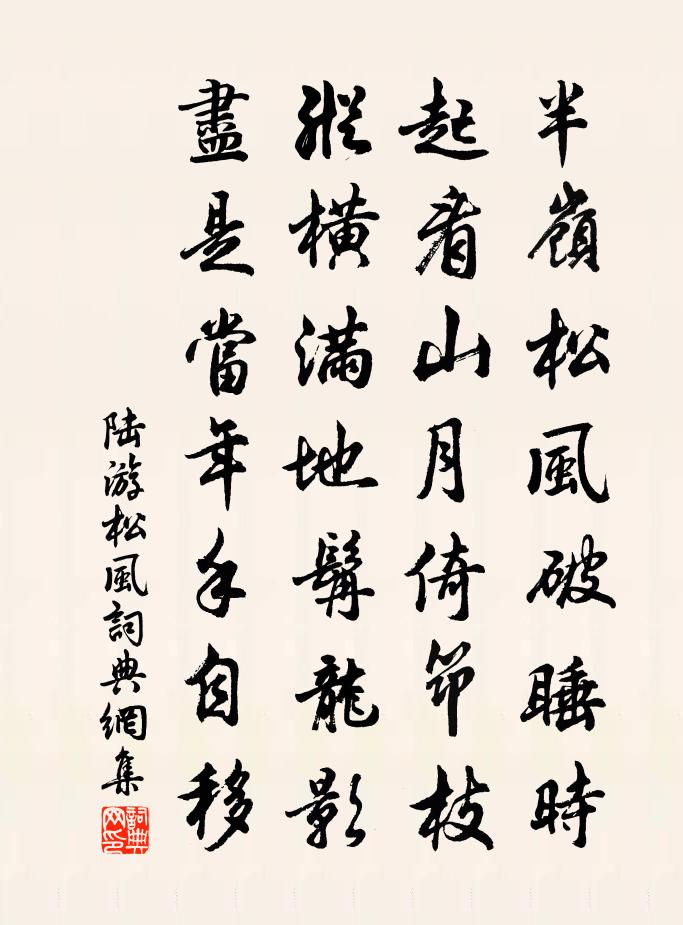 半嶺松風破睡時
起看山月倚筇枝
縱橫滿地髯龍影
盡是當年手自移
陆游松風詞典網集
詞典网印